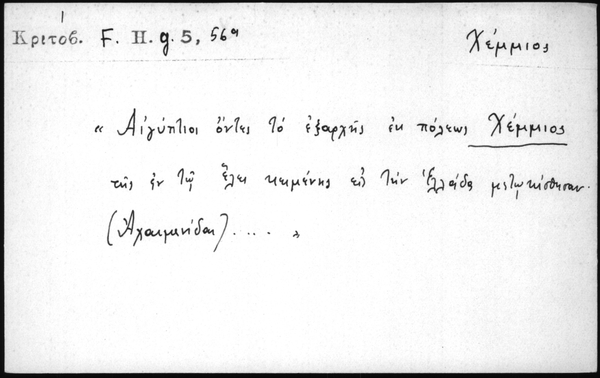 Κριτοβ. F. H. g. 5, 56a
Χέμμιος
« Αἰγύπτιοι ὄντες τὸ ἐξαρχῆς ἐκ πόλεως Χέμμιος
τῆς ἐν τῷ ἕλει κειμένης εἰς τὴν Ἑλλάδα μετῳκίσθησαν.
(Ἀχαιμενίδαι) .... »